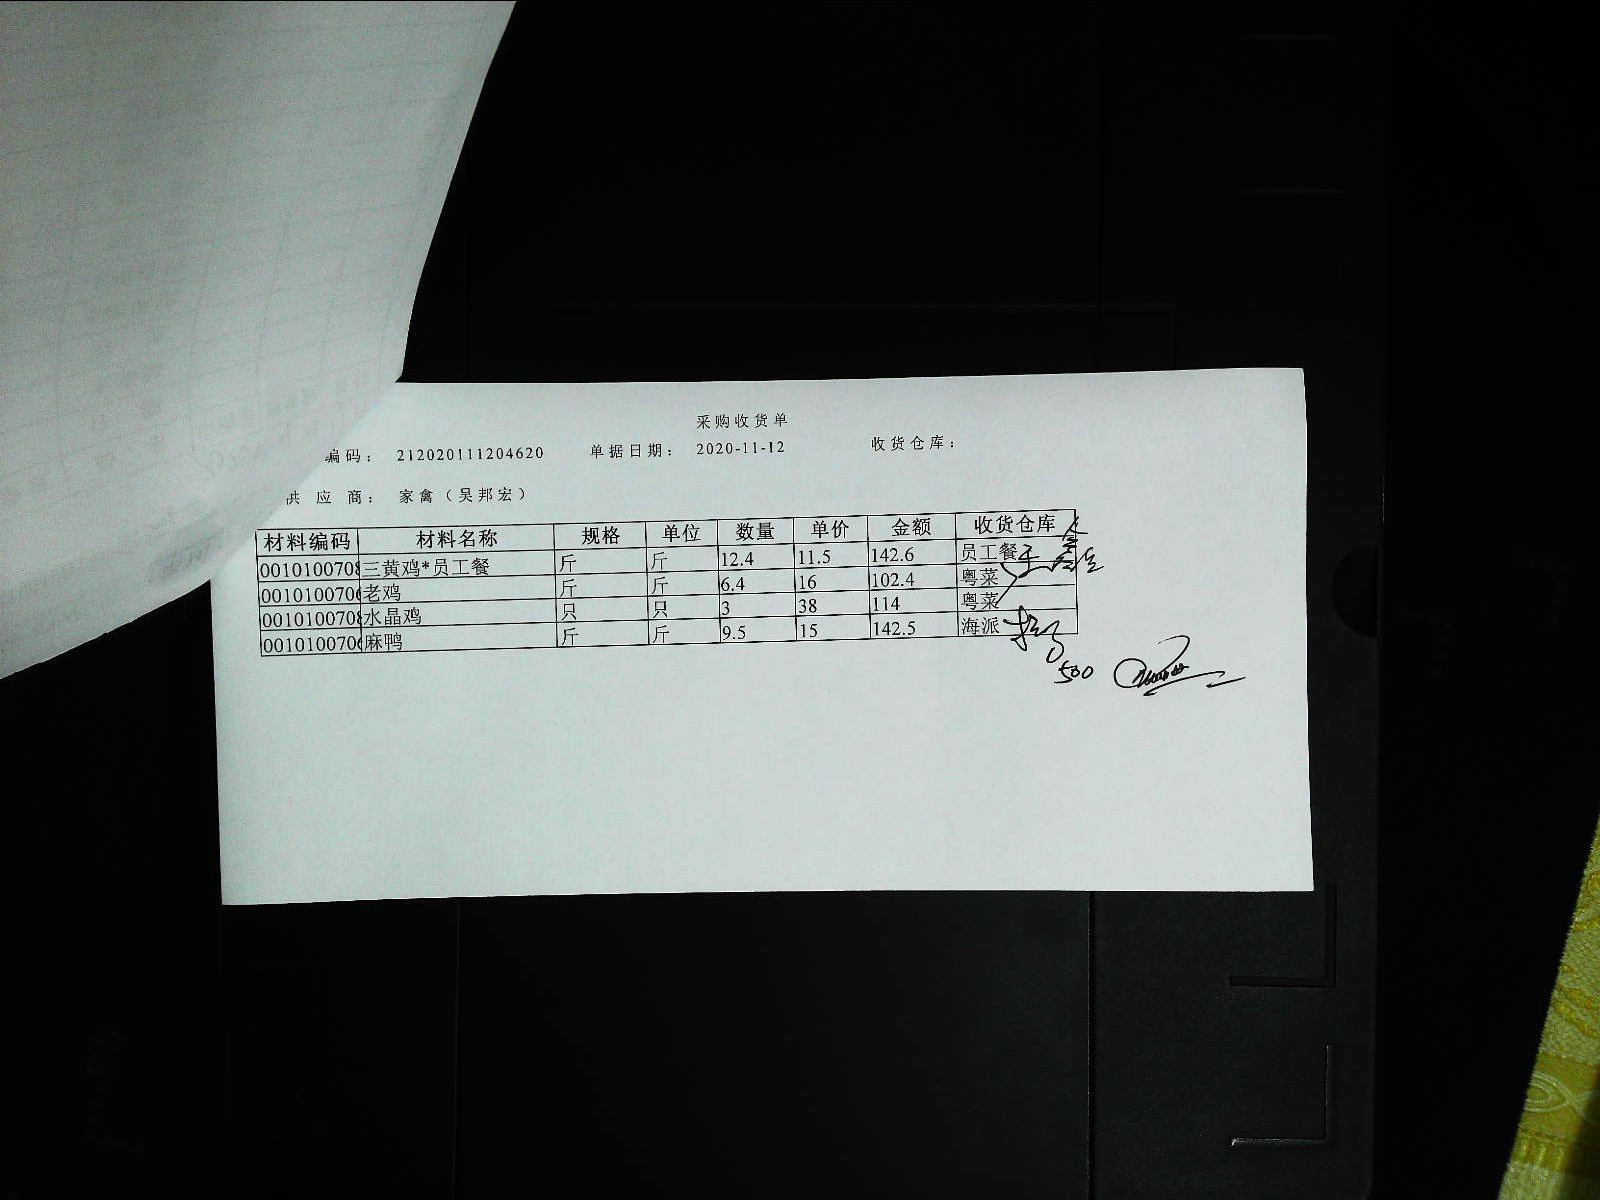 采购收货单
编码： 212020111204620 单据日期： 2020-11-12 收货仓库：
供应商： 家禽（吴邦宏）
材料编码 材料名称 规格 单位 数量 单价 金额 收货仓库
0010100708 三黄鸡*员工餐 斤 斤 12.4 11.5 142.6 员工餐
001010070 老鸡 斤 斤 6.4 16 102.4 粤菜
0010100708 水晶鸡 只 只 3 38 114 粤菜
001010070 麻鸭 斤 斤 9.5 15 142.5 海派
500